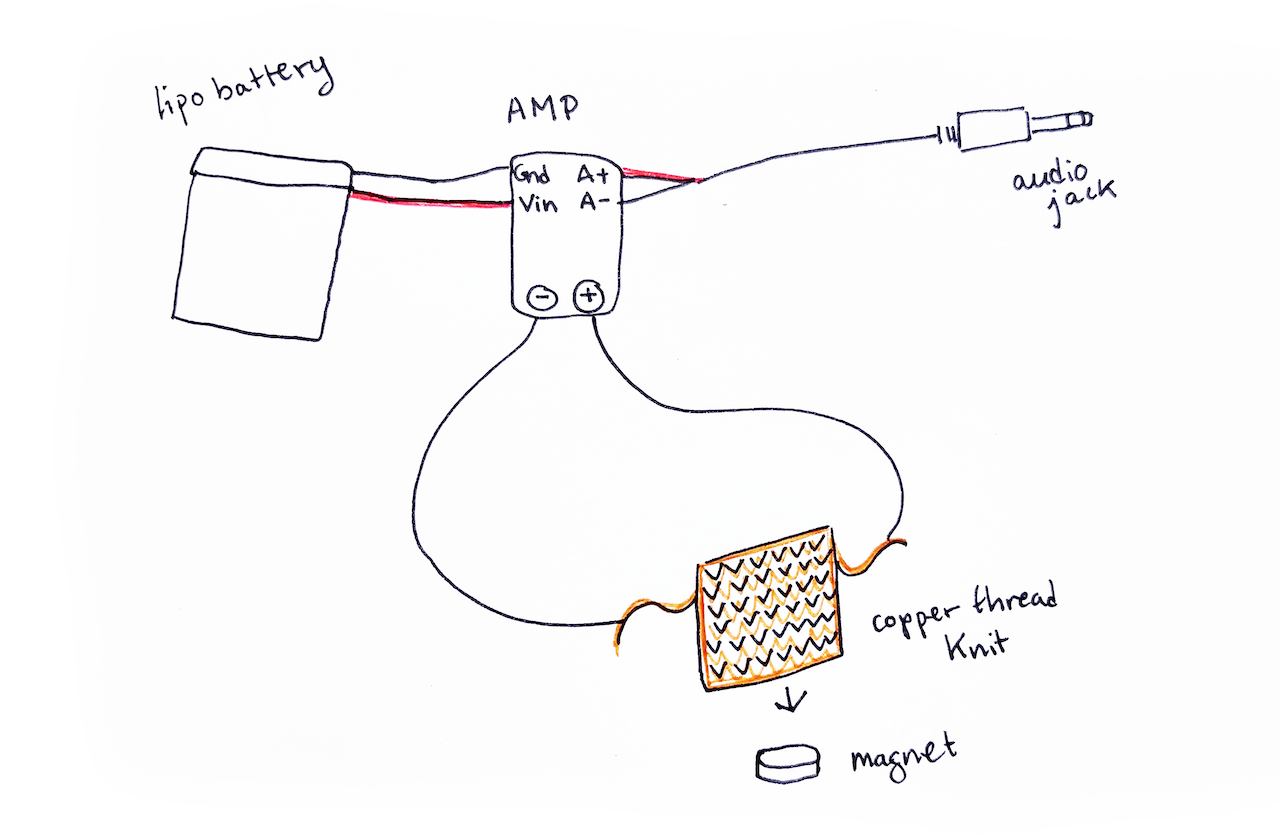 lipo battery
AMP
Gnd A+
Vin A-
- +
audio
jack
copper thread
Knit
magnet